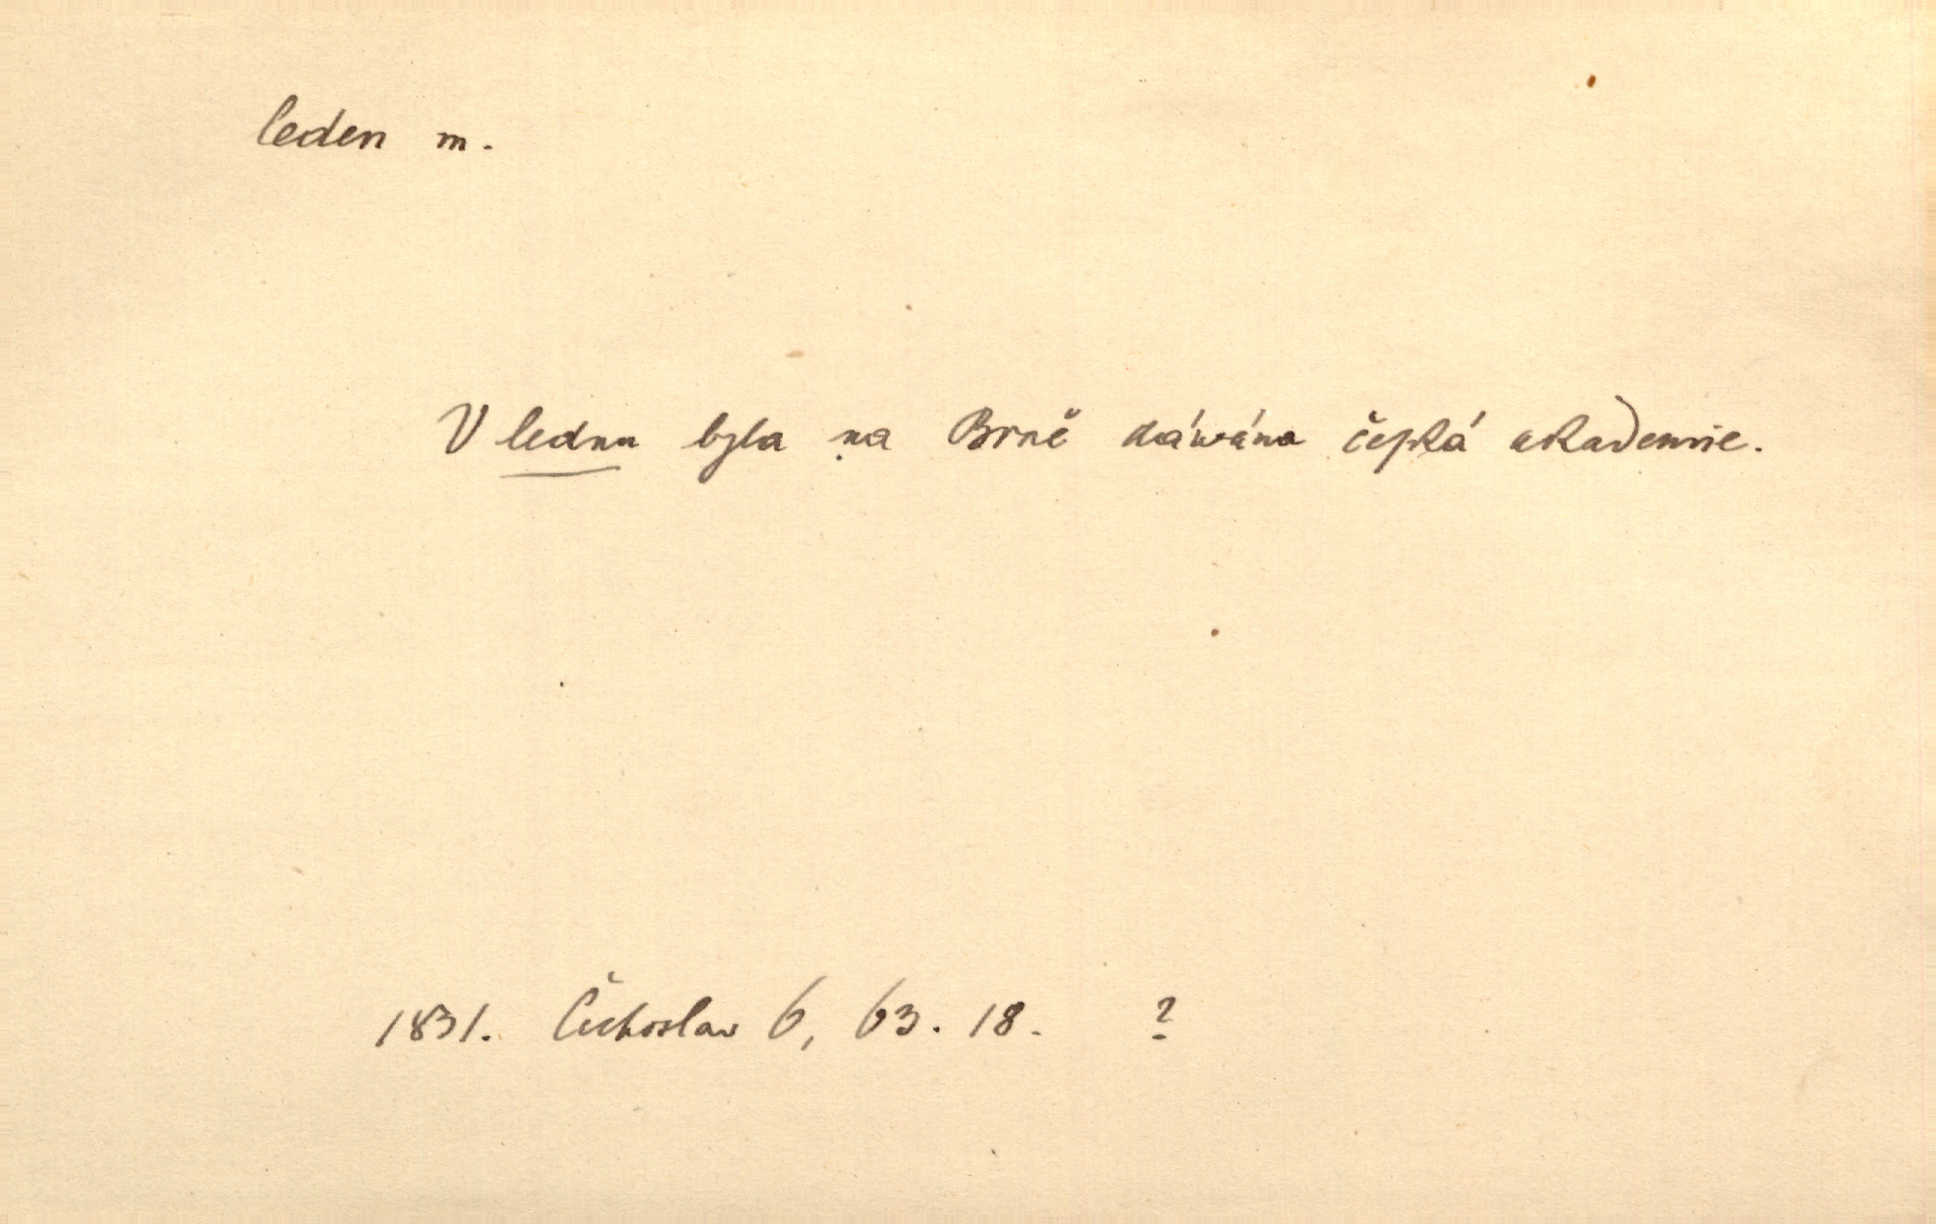 leden m.
V lednu byla na Brně dáwána česká akademie.
1831. Čechoslav 6, 63. 18. ?